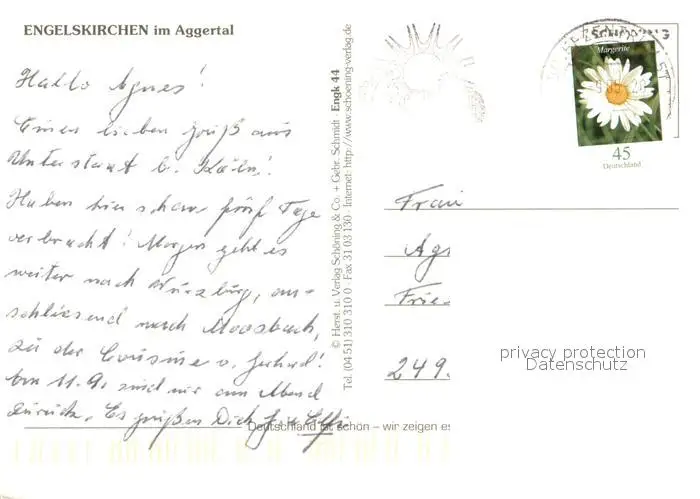 ENGELSKIRCHEN im Aggertal
Hallo Agnes!
Einen lieben Gruß aus
b. Köln!
Haben hier schon fünf Tage
verbracht! Morgen geht es
weiter nach Würzburg, an-
schliesend nach Moosbach,
zu der Cousine v. Gerhard!
Am 11.9. sind wir am Abend
zurück. Es grüßen Dich
Deutschland ist schön – wir zeigen es
© Herst. u. Verlag Schöning & Co. + Gebr. Schmidt · Engk 44
Tel. (04 51) 310 310 0 · Fax 31 03 130 · Internet: http://www.schoening-verlag.de
Margerite
45
Deutschland
Frau
Ag
Frie
249
privacy protection
Datenschutz